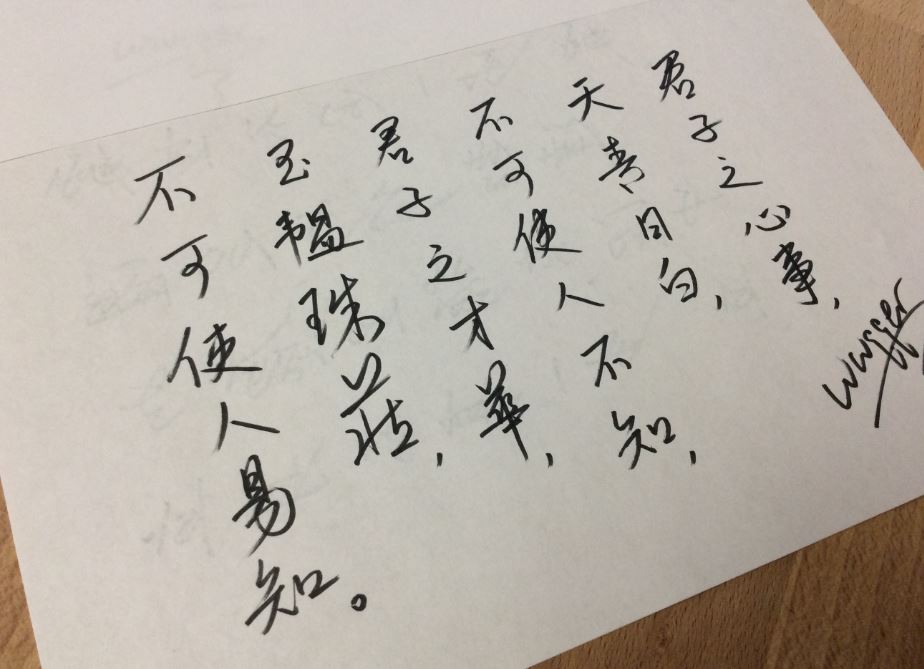 君子之心事,
天青日白,
不可使人不知,
君子之才華,
玉韞珠藏,
不可使人易知。